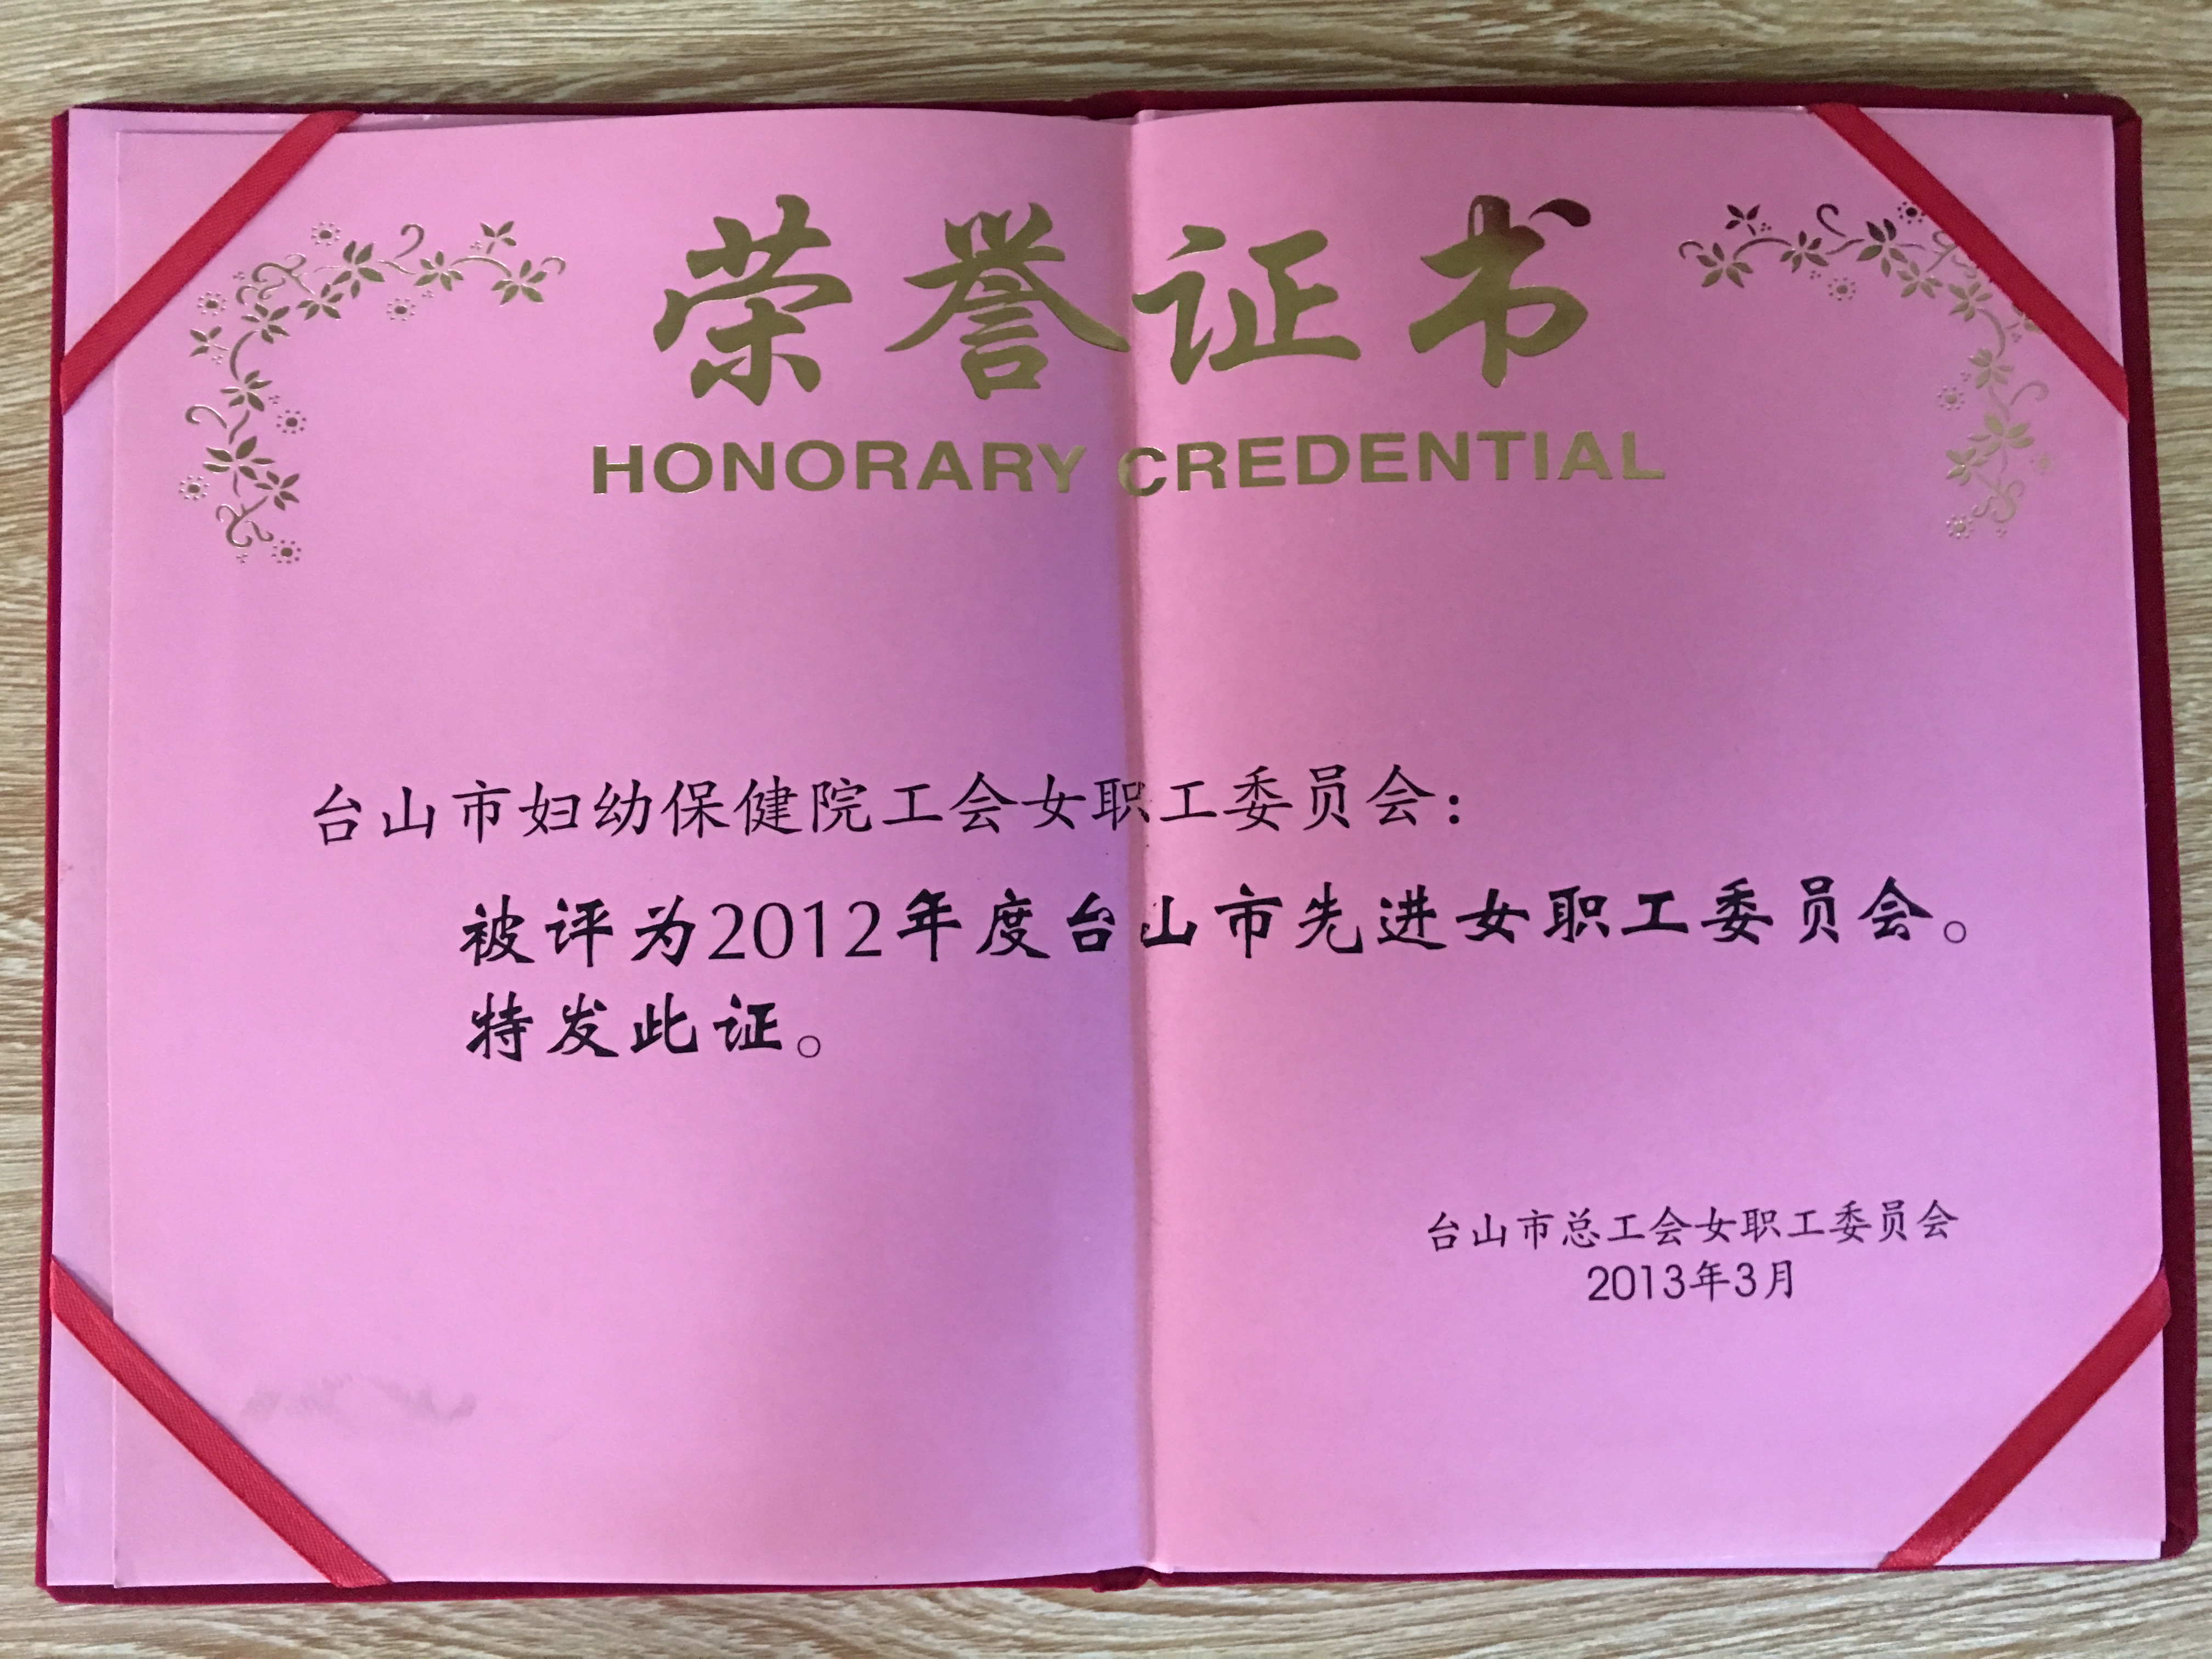 荣誉证书
HONORARY CREDENTIAL
台山市妇幼保健院工会女职工委员会：
被评为2012年度台山市先进女职工委员会。
特发此证。
台山市总工会女职工委员会
2013年3月